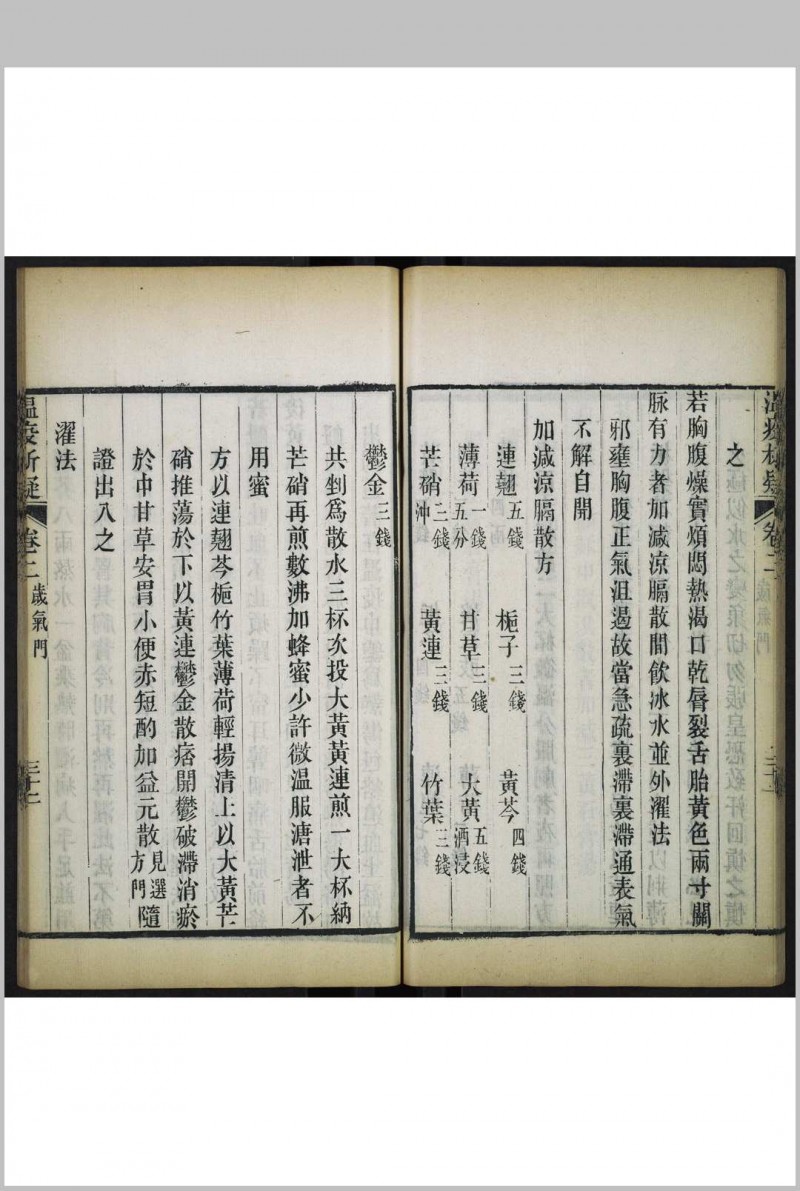 之
若胸腹燥實煩悶熱渴口乾唇裂舌胎黃色兩寸關
脉有力者加減涼膈散間飲冰水並外濯法
邪壅胸腹正氣沮遏故當急疏裏滯裏滯通表氣
不解自開
加減涼膈散方
連翹五錢 梔子三錢 黃芩四錢
薄荷一錢五分 甘草三錢 大黃五錢酒浸
芒硝三錢沖 黃連三錢 竹葉三錢
鬱金三錢
共剉爲散水三杯次投大黃黃連煎一大杯納
芒硝再煎數沸加蜂蜜少許微温服溏泄者不
用蜜
方以連翹芩梔竹葉薄荷輕揚清上以大黃芒
硝推蕩於下以黃連鬱金散痞開鬱破滯消瘀
於中甘草安胃小便赤短酌加益元散見選方門隨
證出入之
濯法
温疫析疑 卷二 歲氣門 三十二